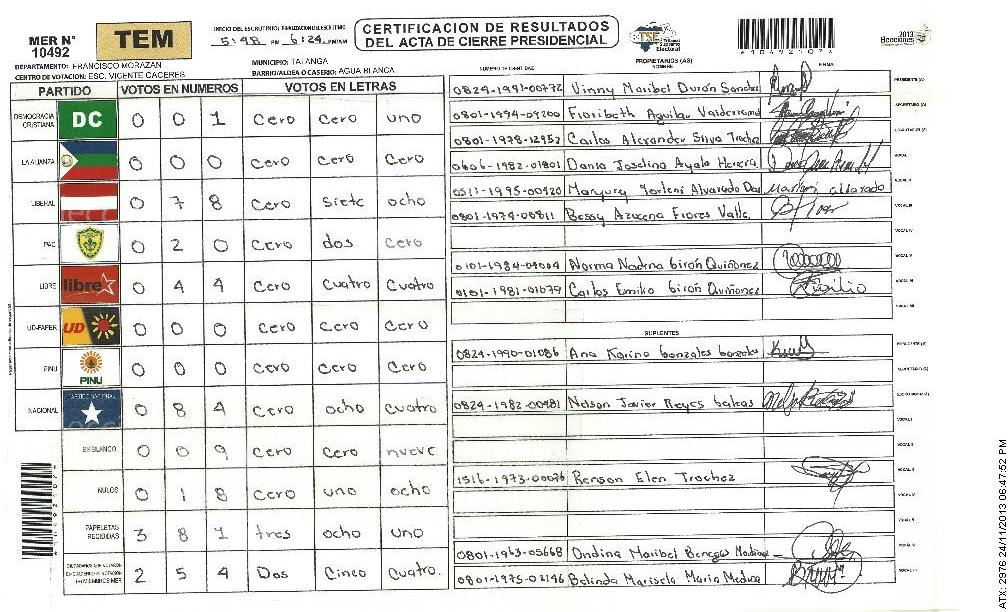 MER N° 10492
TEM
INICIO DEL ESCRUTINIO: FINALIZACION DEL ESCRUTINIO
5:48 PM 6:24 PM/AM
CERTIFICACION DE RESULTADOS
DEL ACTA DE CIERRE PRESIDENCIAL
TSE Tribunal Supremo Electoral
Elecciones 2013
DEPARTAMENTO: FRANCISCO MORAZAN
MUNICIPIO: TALANGA
CENTRO DE VOTACION: ESC. VICENTE CACERES
BARRIO/ALDEA O CASERIO: AGUA BLANCA
PARTIDO VOTOS EN NUMEROS VOTOS EN LETRAS
DEMOCRACIA CRISTIANA DC 0 0 1 Cero Cero uno
LA ALIANZA 0 0 0 Cero Cero Cero
LIBERAL 0 7 8 Cero siete ocho
PAC 0 2 0 Cero dos cero
LIBRE libre 0 4 4 Cero Cuatro Cuatro
UD-FAPER UD 0 0 0 Cero Cero Cero
PINU PINU 0 0 0 Cero Cero Cero
NACIONAL PARTIDO NACIONAL 0 8 4 Cero ocho cuatro
EN BLANCO 0 0 9 Cero Cero nueve
NULOS 0 1 8 Cero uno ocho
PAPELETAS RECIBIDAS 3 8 1 tres ocho uno
2 5 4 Dos Cinco Cuatro.
NUMERO DE IDENTIDAD PROPIETARIOS (AS) NOMBRE FIRMA
0824-1991-00772 Vinny Maribel Durón Sanchez PRESIDENTE (A)
0801-1994-09200 Fioribeth Aguilar Valderrama SECRETARIO (A)
0801-1978-12957 Carlos Alexander Silva Trochez ESCRUTADOR (A)
0606-1982-01801 Dania Joselina Ayala Herrera VOCAL I
0511-1995-00420 Maryury Yorleni Alvarado VOCAL II
0801-1974-00811 Bessy Azucena Flores Valle. VOCAL III
VOCAL IV
0101-1984-04004 Norma Nadina Girón Quiñonez VOCAL V
0101-1981-01079 Carlos Emilio Girón Quiñonez VOCAL VI
VOCAL VII
SUPLENTES
0824-1990-01086 Ana Karina Gonzales Gonzales PRESIDENTE (A)
SECRETARIO (A)
0824-1982-00981 Nelson Javier Reyes ESCRUTADOR (A)
VOCAL I
VOCAL II
1516-1973-00076 Renson Elen Trochez VOCAL III
VOCAL IV
VOCAL V
0801-1963-05668 Ondina Maribel VOCAL VI
0801-1975-02146 Belinda Marisela Maria Medina VOCAL VII
ATX: 2976 24/11/2013 06:47:52 PM